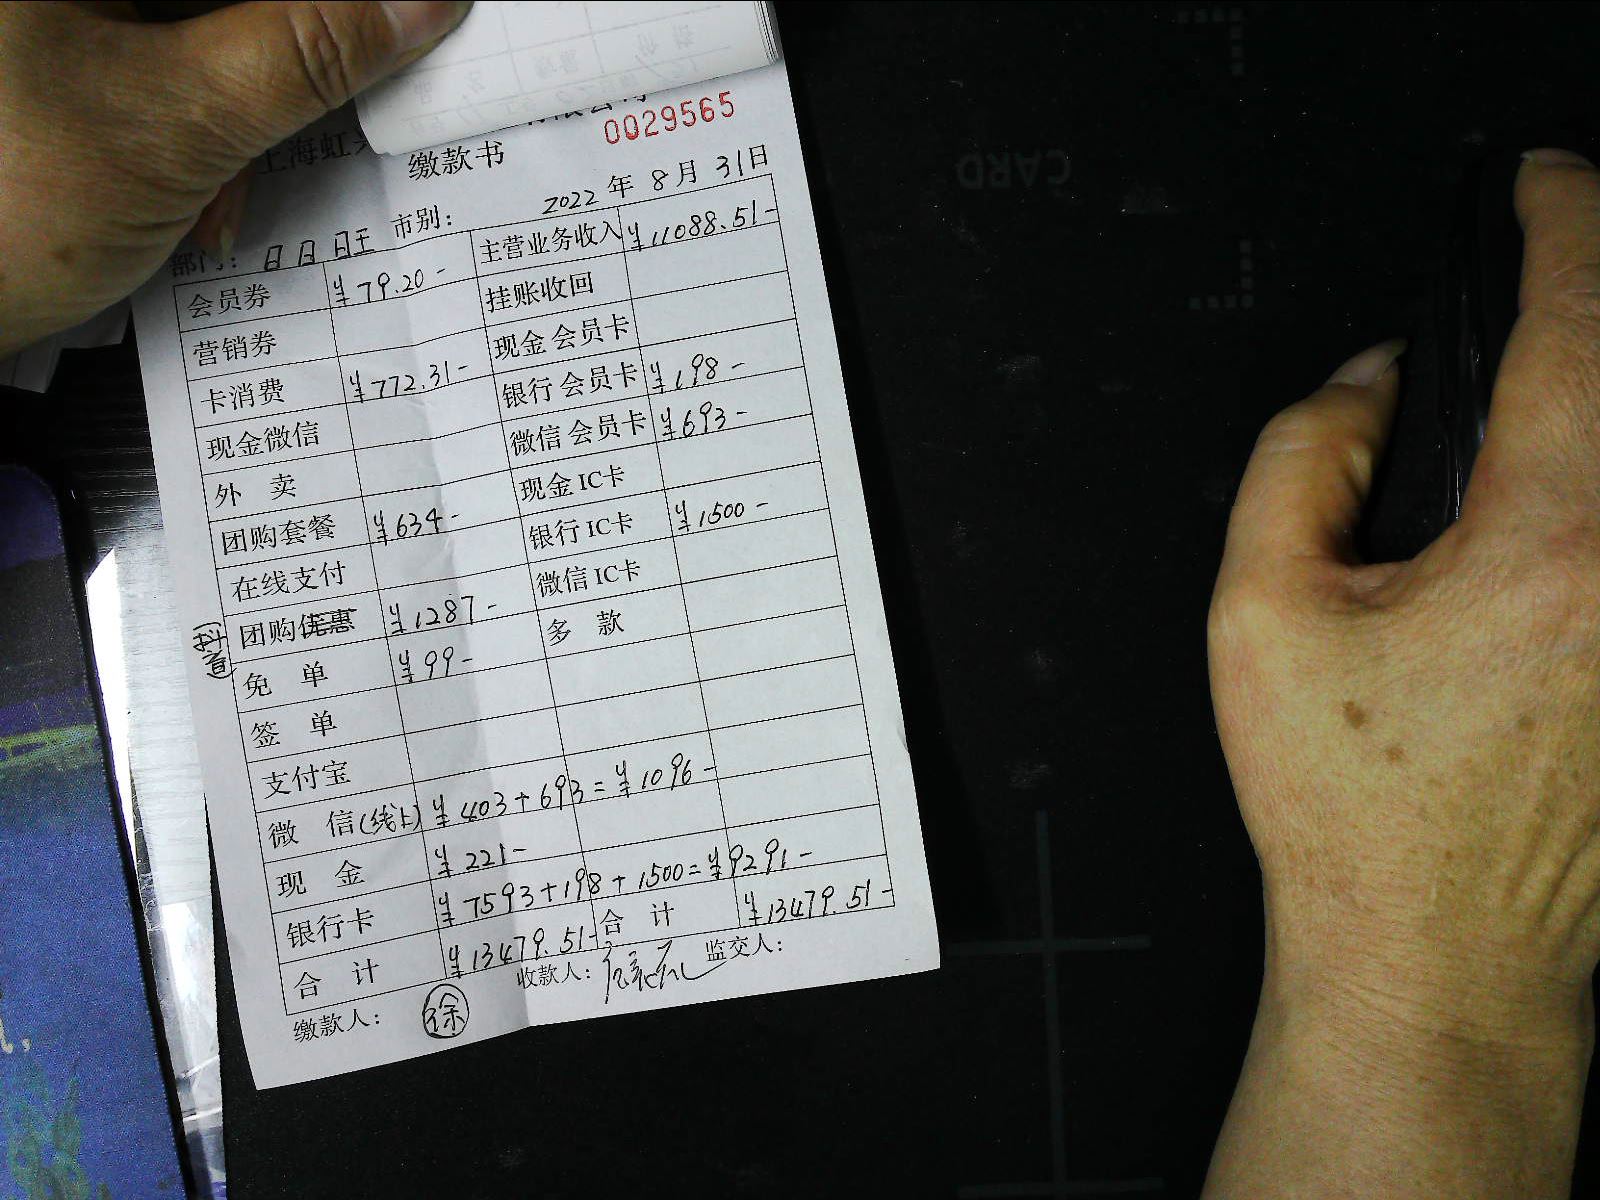 0029565
上海虹
缴款书
部门: 日日旺 市别: 2022年8月31日
会员券 ¥79.20- 主营业务收入 ¥11088.51-
营销券 挂账收回
卡消费 ¥772.31- 现金会员卡
现金微信 银行会员卡 ¥198-
外 卖 微信会员卡 ¥693-
团购套餐 ¥634- 现金IC卡
在线支付 银行IC卡 ¥1500-
抖音 团购优惠 ¥1287- 微信IC卡
免 单 ¥99- 多 款
签 单
支付宝
微 信(线上) ¥403+693=¥1096-
现 金 ¥221-
银行卡 ¥7593+198+1500=¥9291-
合 计 ¥13479.51- 合 计 ¥13479.51-
缴款人: 徐 收款人: 监交人:
CARD